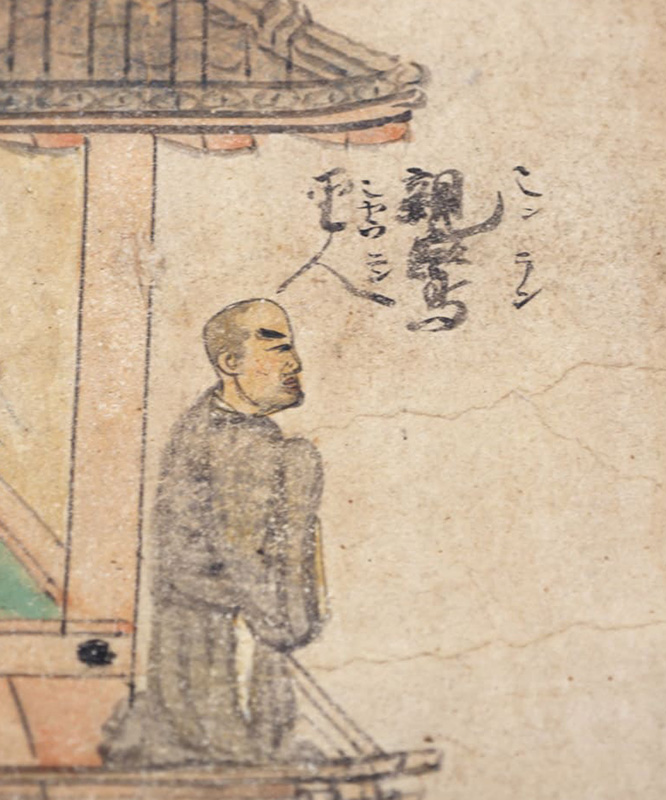 シンラン
親鸞
シヤウニン
聖人